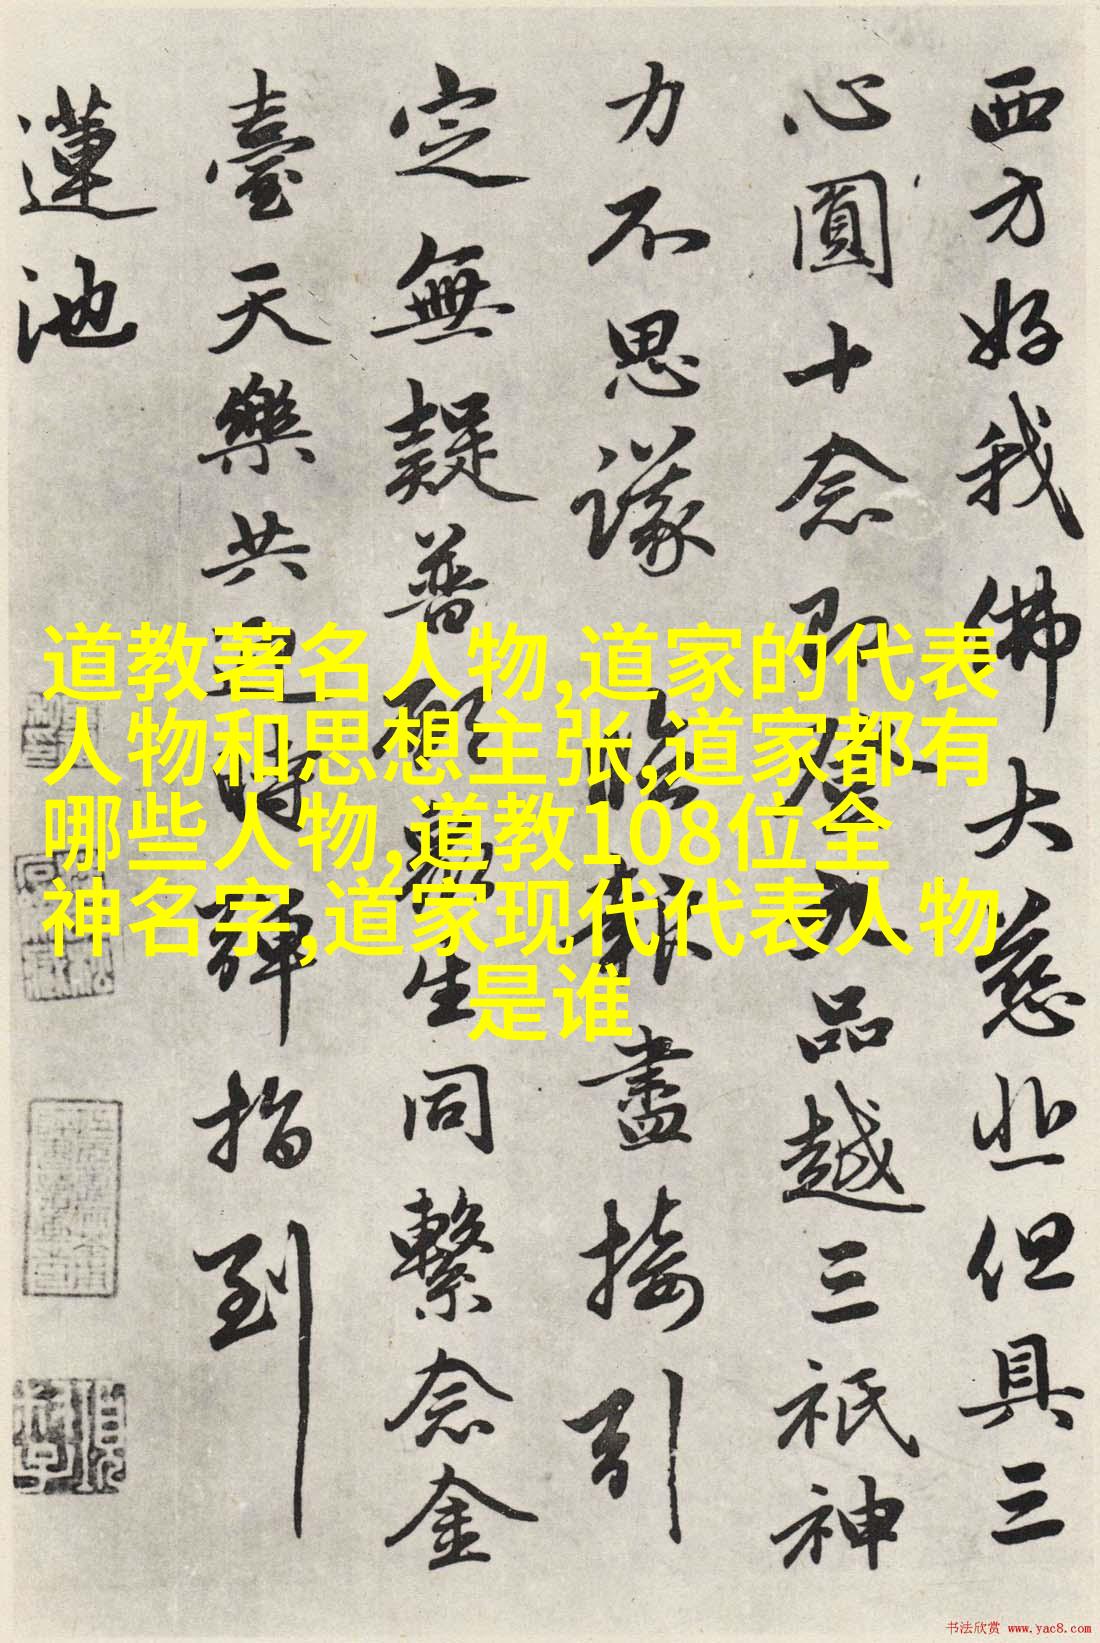 西方好我佛大慈悲但具三
心圓十念即登九品越三祇神
力不思議臨報盡接引
定無疑普願眾生同繫念金
臺天樂共迎時彈指到
蓮池
道教著名人物,道家的代表
人物和思想主张,道家都有
哪些人物,道教108位全
神名字,道家现代代表人物
是谁
书法欣赏 www.yac8.com